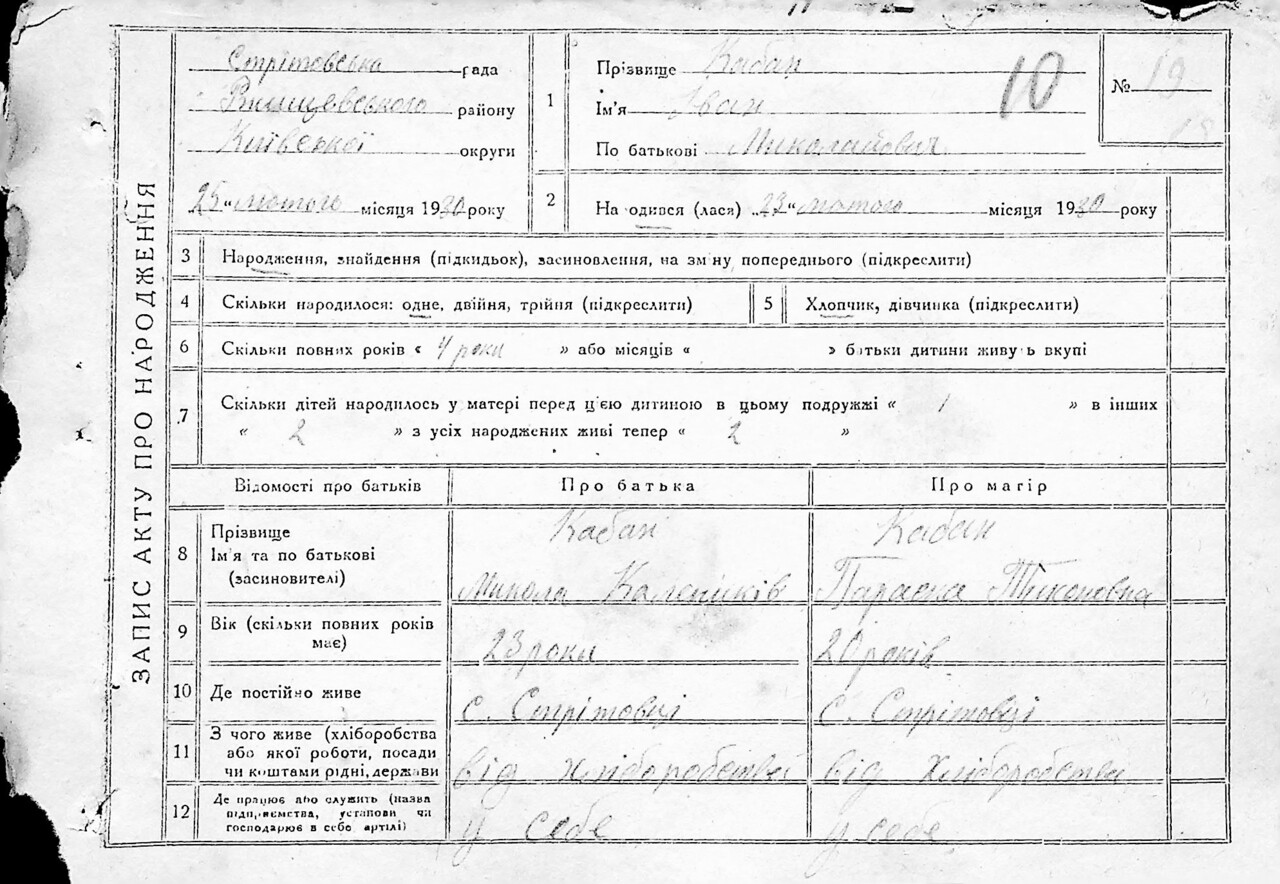 ЗАПИС АКТУ ПРО НАРОДЖЕННЯ
Стрітовська рада
Ржищевського району
Київської округи
25 "лютого місяця 1930 року
1
Прізвище Кабан
Ім'я Іван
По батькові Миколайович
10
№ 19
2
На одився (лася) „23" лютого місяця 1930 року
3 Народження, знайдення (підкидьок), засиновлення, на зм ну попереднього (підкреслити)
4 Скільки народилося: одне, двійня, трійня (підкреслити)
5 Хлопчик, дівчинка (підкреслити)
6 Скільки повних років « 4 роки » або місяців « » батьки дитини живу ь вкупі
7 Скільки дітей народилось у матері перед ц'єю дитиною в цьому подружжі « 1 » в інших
« 2 » з усіх народжених живі тепер « 2 »
Відомості про батьків Про батька Про матір
8
Прізвище Кабан Кабан
Ім'я та по батькові
(засиновителі) Микола Параска Тихоновна
9
Вік (скільки повних років
має) 23 роки 20 років
10 Де постійно живе с. Стрітовці с. Стрітовці
11
З чого живе (хліборобства
або якої роботи, посади
чи коштами рідні, держави від хліборобства від хліборобства
12
Де працює або служить (назва
підприємства, установи чи
господарює в себе артілі) у себе у себе